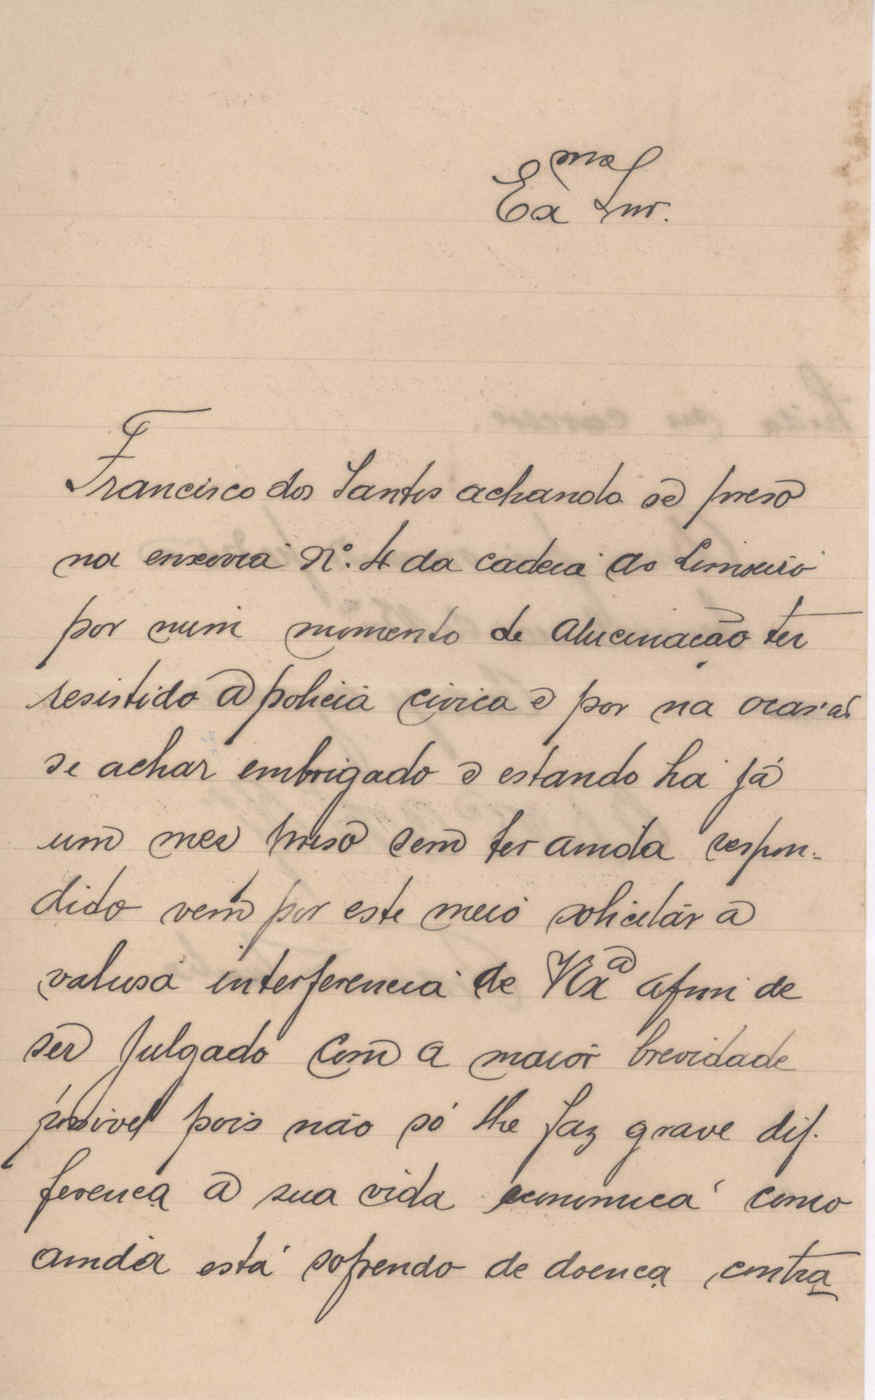 Exmo Snr.
Francisco dos Santos achando se preso
na enxovia Nº. 4 da cadeia do Limoeiro
por num momento de alucinação ter
resistido a policia civica e por na ocasiaõ
se achar embrigado e estando ha já
um mez preso sem ter ainda respon-
dido vem por este meio solicitar a
valiosa interferencia de V Exª afim de
ser julgado com a maior brevidade
possivel pois não só lhe faz grave dif-
ferença a sua vida economica como
ainda está sofrendo de doença contra